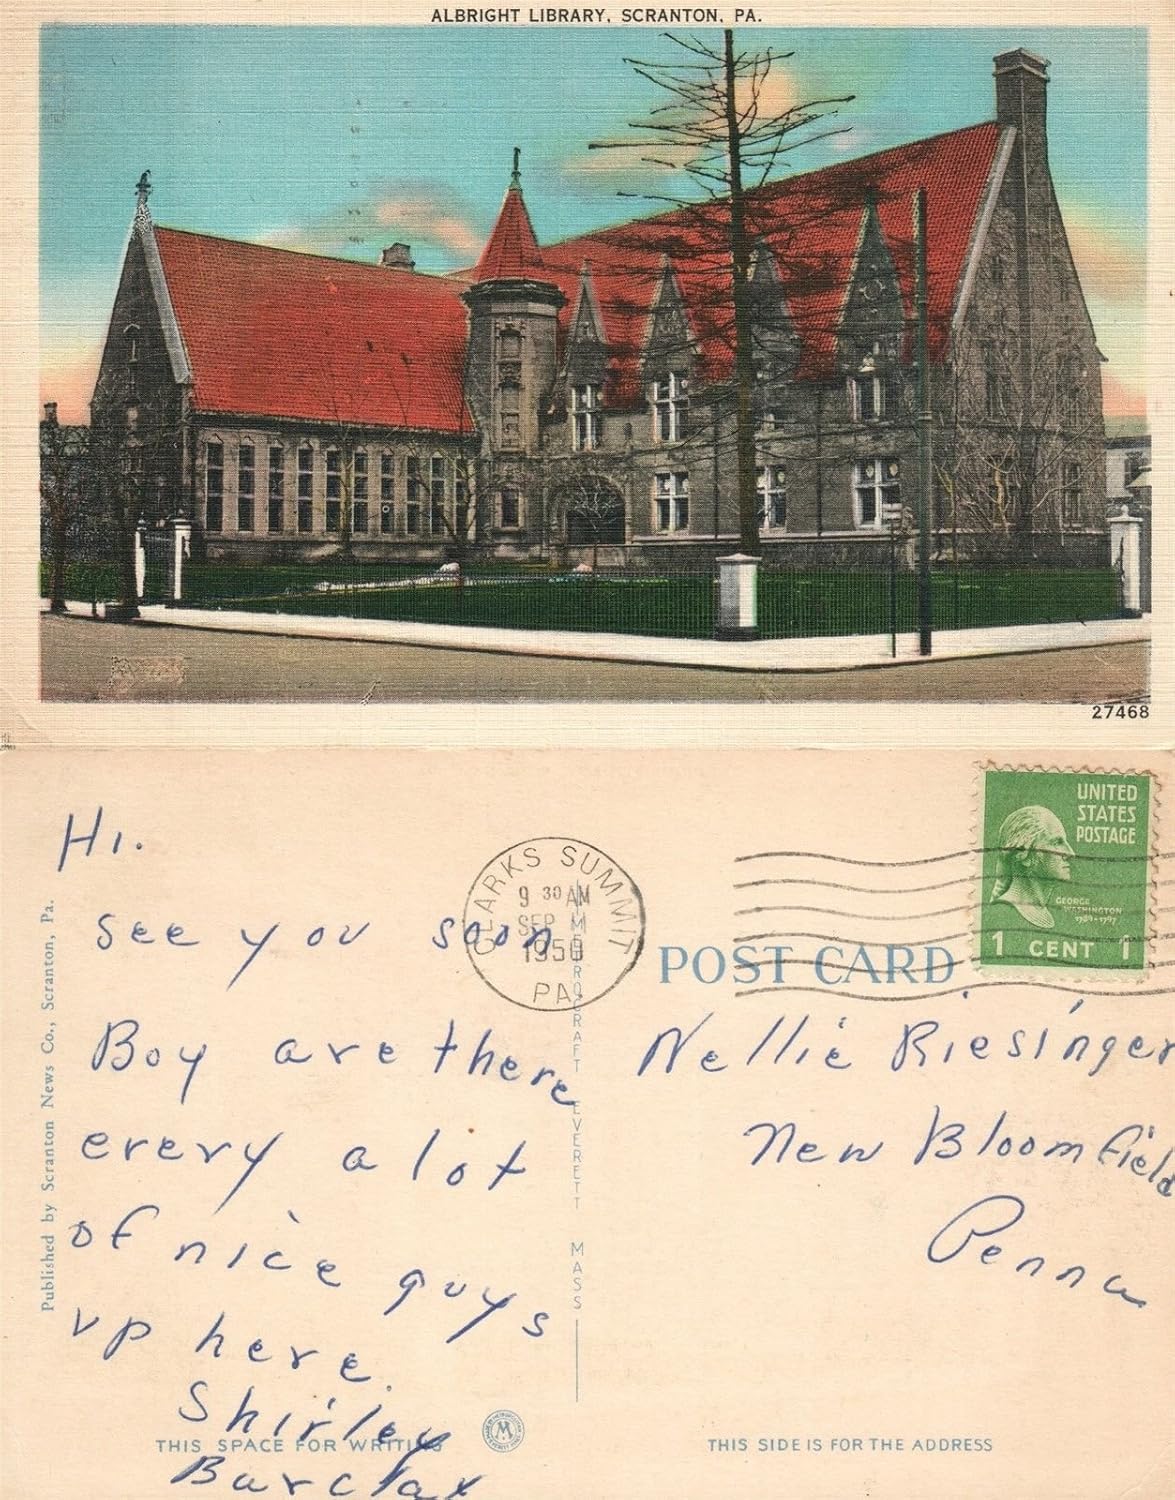 ALBRIGHT LIBRARY, SCRANTON, PA.
27468
Hi.
see you soon
Boy are there
erery a lot
of nice guys
up here.
Shirley
Barclay
Published by Scranton News Co., Scranton, Pa.
THIS SPACE FOR WRITING
CLARKS SUMMIT
9 30 AM
SEP
1950
PA.
METROCRAFT EVERETT MASS
POST CARD
UNITED
STATES
POSTAGE
GEORGE
WASHINGTON
1789-1797
1 CENT 1
Nellie Riesinger
New Bloomfield
Penna
THIS SIDE IS FOR THE ADDRESS